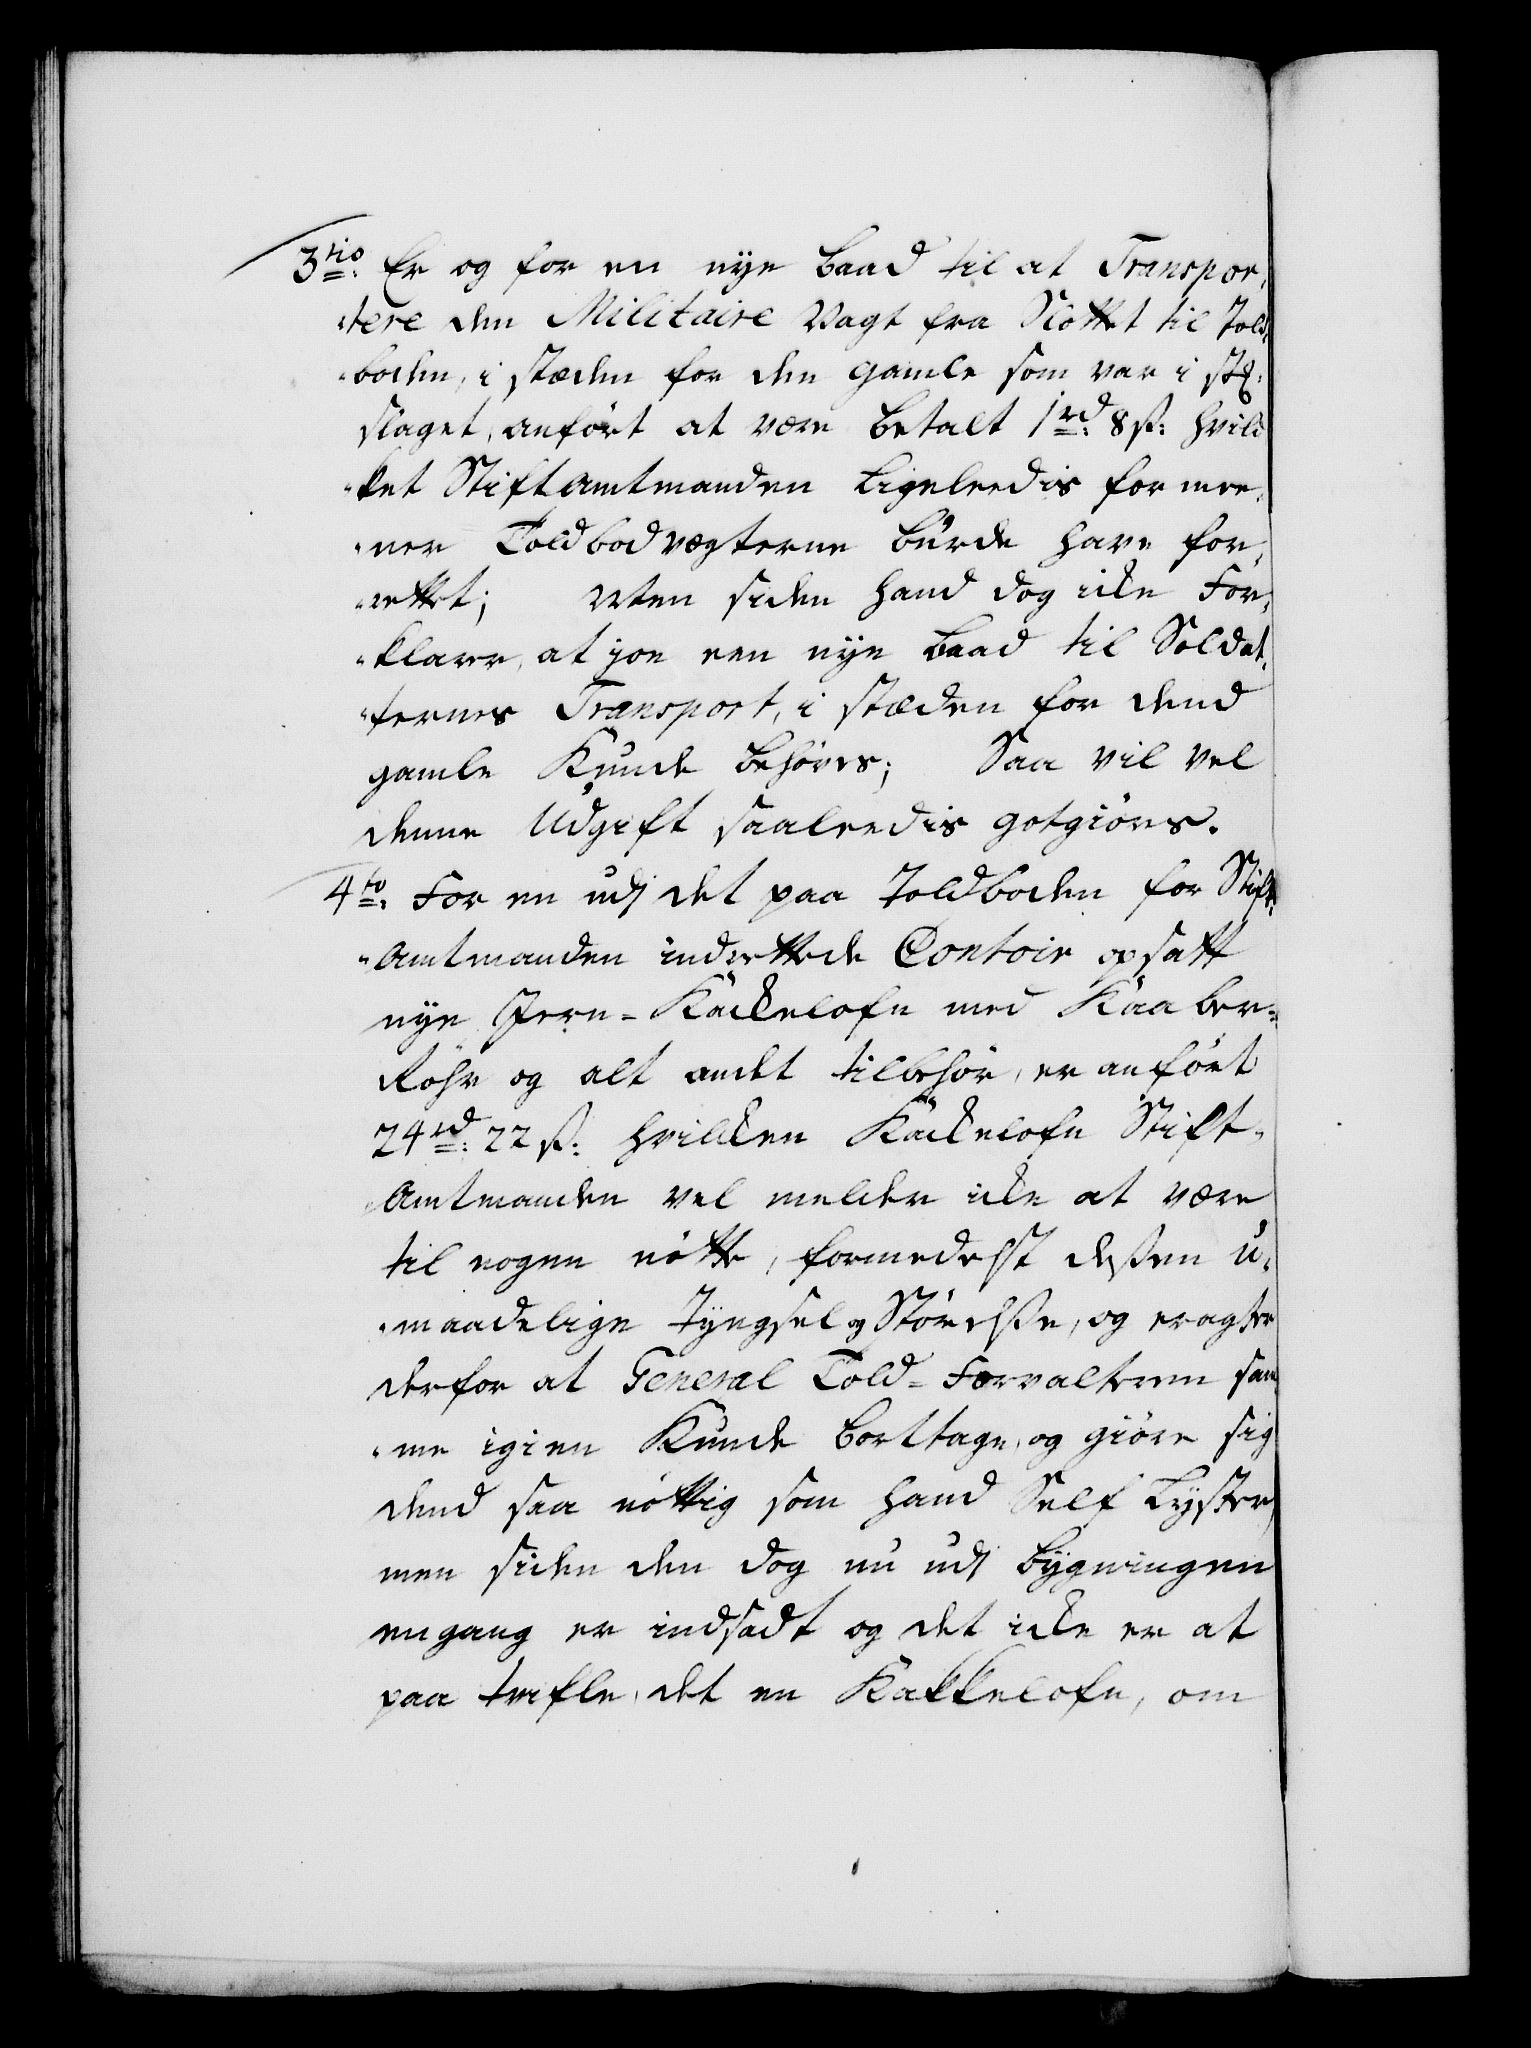 3tio: Er og for en nye baad til at Transpor,
„tere den Militaire Vagt fra Slottet til Told„
„boden, i stæden for den gamle som var i stÿ„
slaget, anført at være betalt 1rd: 8 ß: hvil„
„ket Stiftamtmanden ligeleedis formee„
„ner Toldbodvegterne burde have for„
„rettet; Men siden hand dog icke For„
„klarer, at joe een nye baad til Soldat„
„ternes Transport, i stæden for dend
gamle Kunde behøves; Saa vil vel
denne Udgift saaleedis gotgiøres.
4to: For en udj det paa Toldboden for Stift„
„Amtmanden indrettede Contoir opsatt
nye Jern-Kackelofn med Kaaber-
Røhr og alt andet tilbehør, er anført
24rd: 22 ß: hvilcken Kackelofn Stift„
„Amtmanden vel melder icke at være
til nogen nøtte, formedelst deßen u„
„maadelige Tyngsel og Størelße, og eragter
derfor at General Told-Forvalteren sam„
„me igien Kunde borttage, og giøre sig
dend saa nøttig som hand Self lyster,
men siden den dog nu udj bygningen
engang er indsadt og det icke er at
paa tvifle, det en Kakkelofn, om